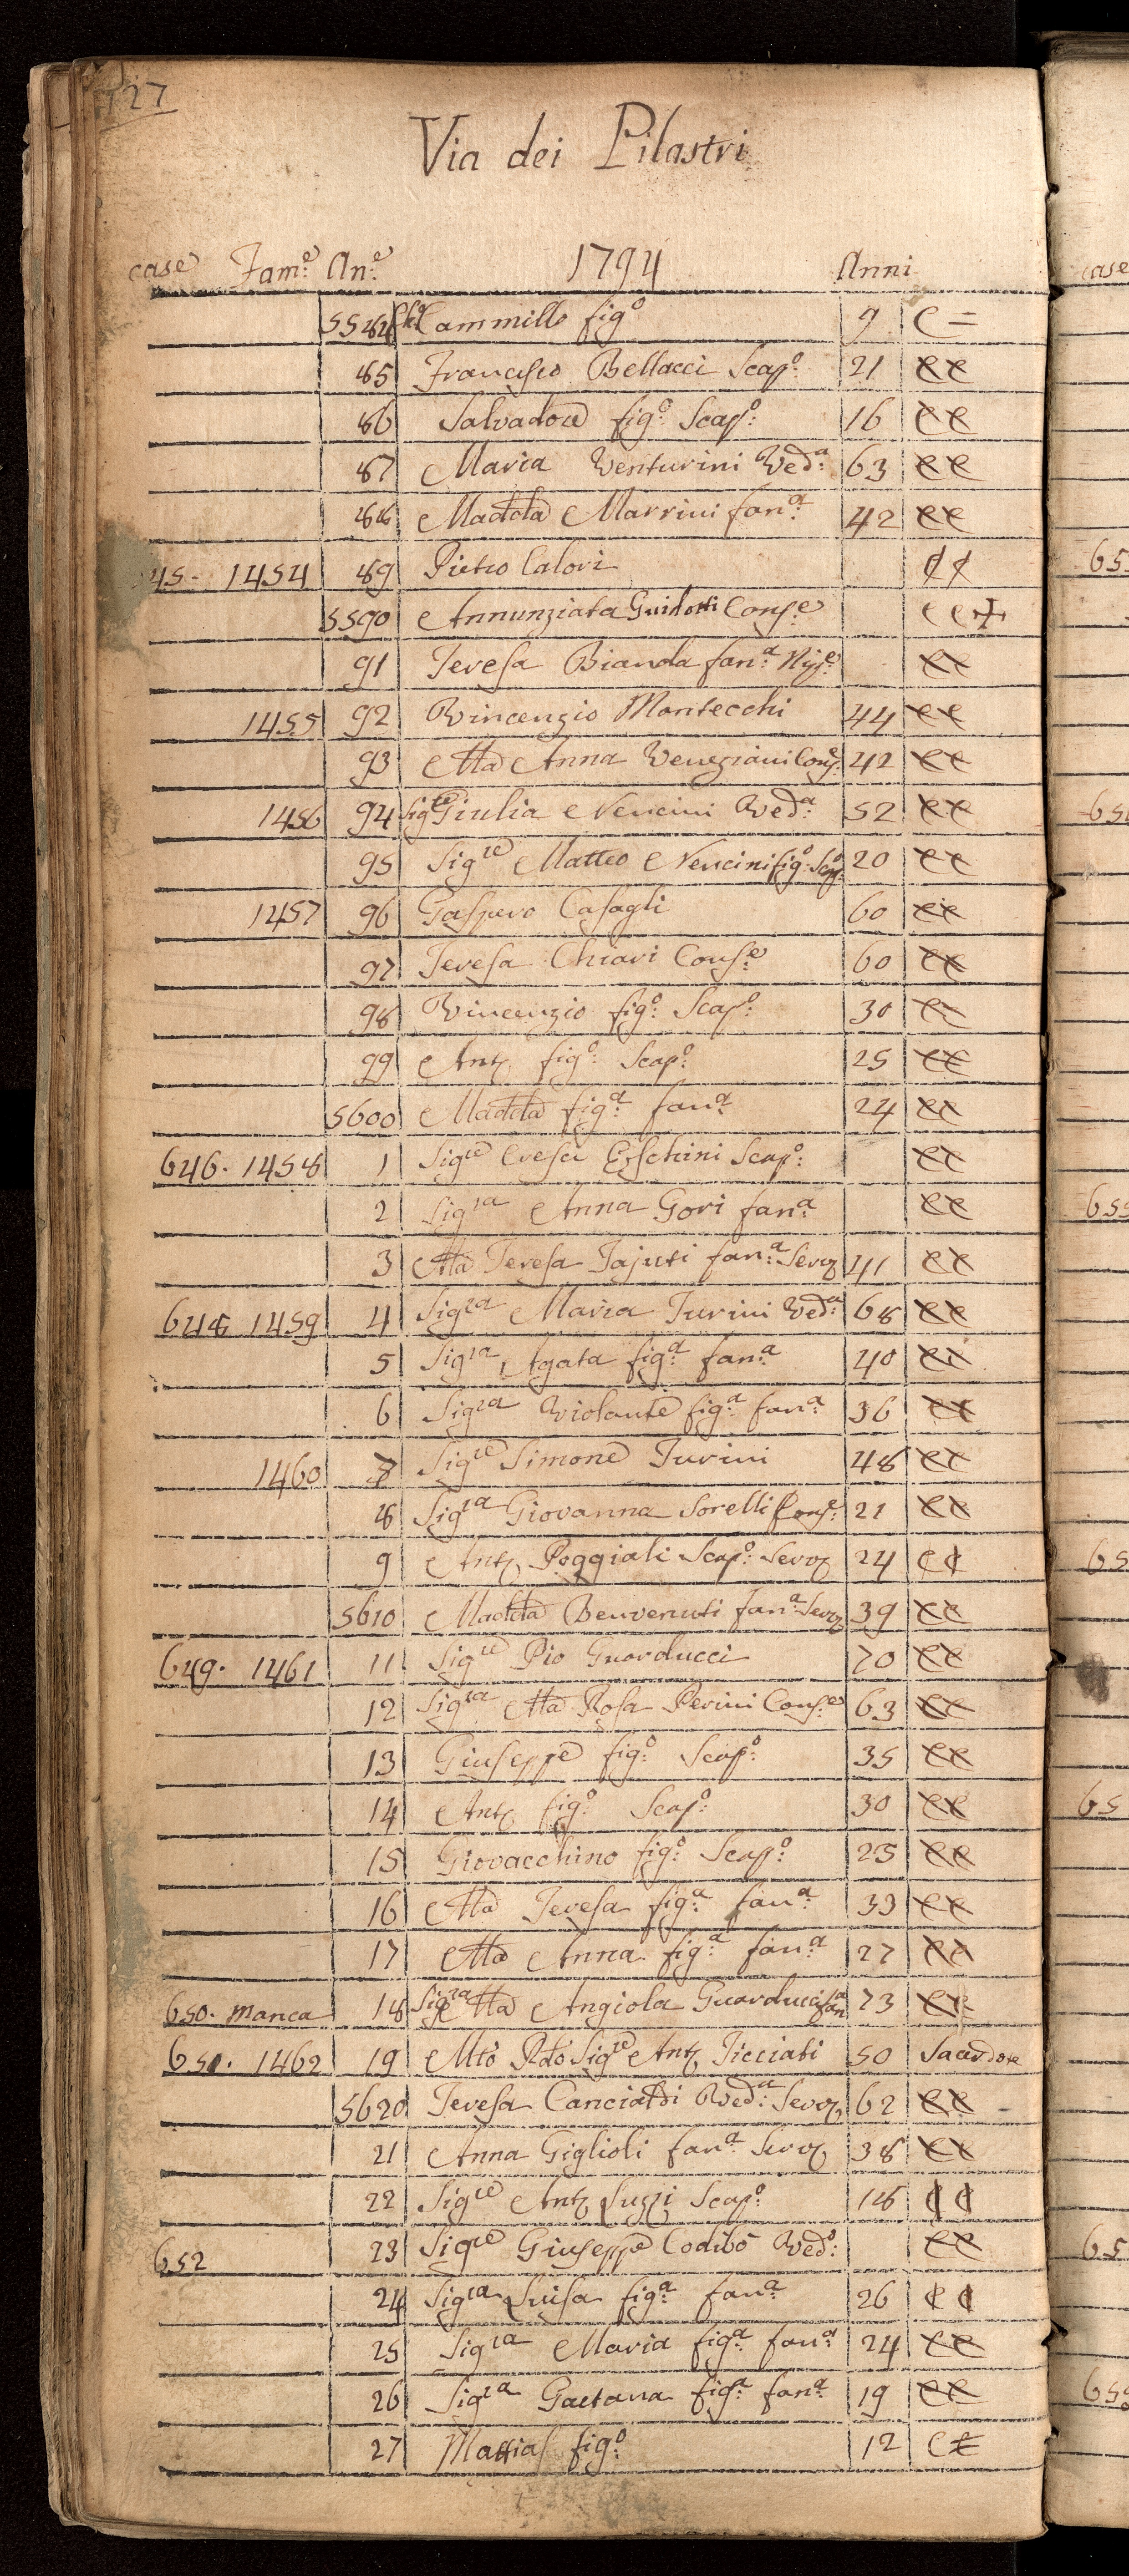 127
Via dei Pilastri
case Fam.e An.e 1794 Anni
5584 Cammillo fig.o 9 C =
85 Francesco Bellacci Scap.o 21 CC
86 Salvadore fig.o Scap.o 16 CC
87 Maria Venturini Ved.a 63 CC
88 Madd.a Marrini fan.a 42 CC
45. 1454 89 Pietro Calori CC
5590 Annunziata Guidotti Cons.e CC+
91 Teresa Bianda fan.a CC
1455 92 Vincenzio Montecchi 44 CC
93 Ma Anna Veneziani Cons.e 42 CC
1456 94 Sig.ra Giulia Nencini Ved.a 52 CC
95 Sig.re Matteo Nencini fig.o Scap.o 20 CC
1457 96 Gaspero Casagli 60 CC
97 Teresa Chiari Cons.e 60 CC
98 Vincenzio fig.o Scap.o 30 CC
99 Ant.o fig.o Scap.o 25 CC
5600 Madd.a fig.a fan.a 24 CC
646. 1458 1 Sig.re Cresci Scap.o CC
2 Sig.ra Anna Gori fan.a CC
3 Ma Teresa Tajuti fan.a Serv. 41 CC
648 1459 4 Sig.ra Maria Turini Ved.a 68 CC
5 Sig.ra Agata fig.a fan.a 40 CC
6 Sig.ra Violante fig.a fan.a 36 CC
1460 7 Sig.re Simone Turini 48 CC
8 Sig.ra Giovanna Sorelli Cons.e 21 CC
9 Ant.o Poggiali Scap.o Serv. 24 CC
5610 Madd.a Benvenuti fan.a Serv. 39 CC
649. 1461 11 Sig.re Pio Guarducci 70 CC
12 Sig.ra Ma Rosa Perini Cons.e 63 CC
13 Giuseppe fig.o Scap.o 35 CC
14 Ant.o fig.o Scap.o 30 CC
15 Giovacchino fig.o Scap.o 25 CC
16 Ma Teresa fig.a fan.a 33 CC
17 Ma Anna fig.a fan.a 27 CC
650. manca 18 Sig.ra Ma Angiola Guarducci fan.a 73 CC
651. 1462 19 Mto Rdo Sig.re Ant.o Ticciati 50 Sacerdote
5620 Teresa Ved.a Serv. 62 CC
21 Anna Giglioli fan.a Serv. 38 CC
22 Sig.re Ant.o Suzzi Scap.o 18 CC
652 23 Sig.re Giuseppe Codibò Ved.o CC
24 Sig.ra Luisa fig.a fan.a 26 CC
25 Sig.ra Maria fig.a fan.a 24 CC
26 Sig.ra Gaetana fig.a fan.a 19 CC
27 Mattias fig.o 12 CC